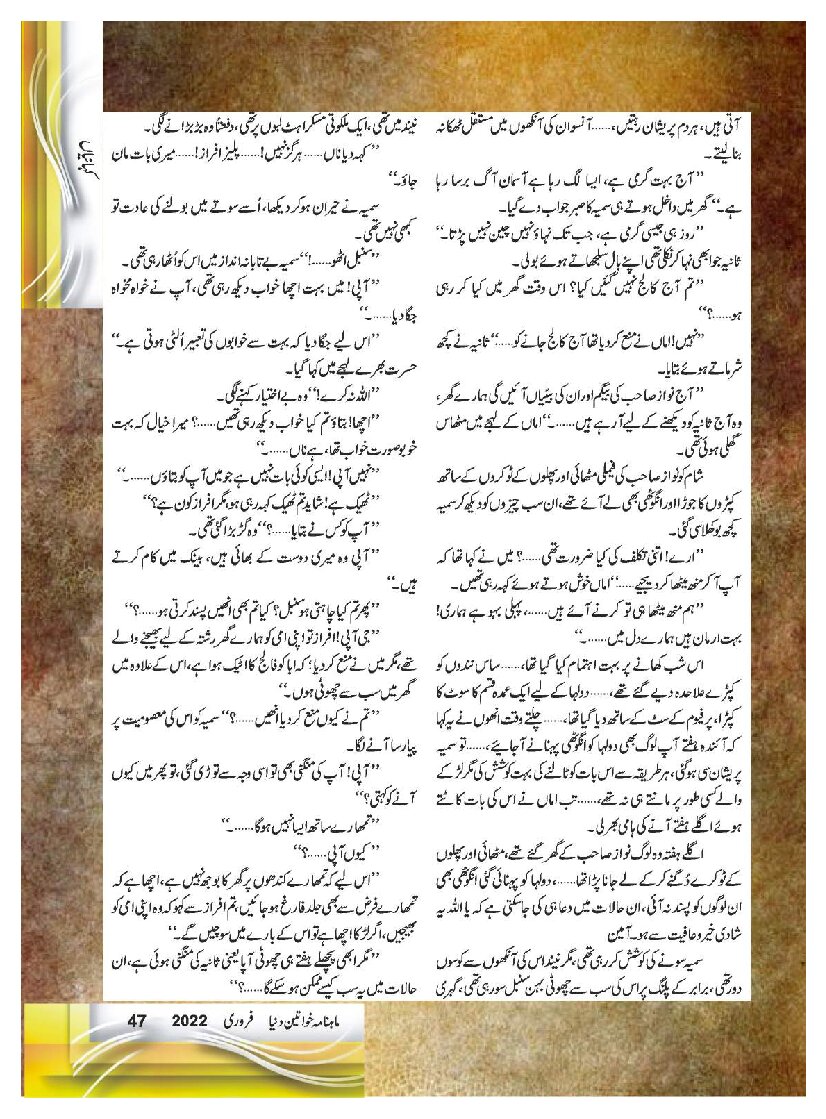 آتی ہیں، ہر دم پریشان رہتیں،......آنسو ان کی آنکھوں میں مستقل ٹھکانہ
بنا لیتے۔
’’آج بہت گرمی ہے، ایسا لگ رہا ہے آسمان آگ برسا رہا
ہے۔‘‘ گھر میں داخل ہوتے ہی سمیہ کا صبر جواب دے گیا۔
’’روز ہی جیسی گرمی ہے، جب تک نہاؤ نہیں چین نہیں پڑتا۔‘‘
ثانیہ جو ابھی نہا کر نکلی تھی اپنے بال سلجھاتے ہوئے بولی۔
’’تم آج کالج نہیں گئیں کیا؟ اس وقت گھر میں کیا کر رہی
ہو......؟‘‘
’’نہیں! اماں نے منع کر دیا تھا آج کالج جانے کو.....‘‘ ثانیہ نے کچھ
شرماتے ہوئے بتایا۔
’’آج نواز صاحب کی بیگم اور ان کی بیٹیاں آئیں گی ہمارے گھر،
وہ آج ثانیہ کو دیکھنے کے لیے آ رہے ہیں......۔‘‘ اماں کے لہجے میں مٹھاس
گھلی ہوئی تھی۔
شام کو نواز صاحب کی فیملی مٹھائی اور پھلوں کے ٹوکروں کے ساتھ
کپڑوں کا جوڑا اور انگوٹھی بھی لے آئے تھے، ان سب چیزوں کو دیکھ کر سمیہ
کچھ بوکھلا سی گئی۔
’’ارے! اتنی تکلف کی کیا ضرورت تھی......؟ میں نے کہا تھا کہ
آپ آ کر منھ میٹھا کر دیجیے.....‘‘ اماں خوش ہوتے ہوئے کہہ رہی تھیں۔
’’ہم منھ میٹھا ہی تو کرنے آئے ہیں......، پہلی بہو ہے ہماری!
بہت ارمان ہیں ہمارے دل میں......۔‘‘
اس شب کھانے پر بہت اہتمام کیا گیا تھا،......ساس نندوں کو
کپڑے علاحدہ دیے گئے تھے،......دولہا کے لیے ایک عمدہ قسم کا سوٹ کا
کپڑا، پرفیوم کے سٹ کے ساتھ دیا گیا تھا،......چلتے وقت انھوں نے یہ کہا
کہ آئندہ ہفتے آپ لوگ بھی دولہا کو انگوٹھی پہنانے آ جایئے،......تو سمیہ
پریشان سی ہو گئی، ہر طریقہ سے اس بات کو ٹالنے کی بہت کوشش کی مگر لڑکے
والے کسی طور پر مانتے ہی نہ تھے،......تب اماں نے اس کی بات کاٹتے
ہوئے اگلے ہفتے آنے کی ہامی بھر لی۔
اگلے ہفتہ وہ لوگ نواز صاحب کے گھر گئے تھے، مٹھائی اور پھلوں
کے ٹوکرے دُگنے کر کے لے جانا پڑا تھا......، دولہا کو پہنائی گئی انگوٹھی بھی
ان لوگوں کو پسند نہ آئی، ان حالات میں دعا ہی کی جا سکتی ہے کہ یا اللہ یہ
شادی خیر و عافیت سے ہو۔ آمین
سمیہ سونے کی کوشش کر رہی تھی، مگر نیند اس کی آنکھوں سے کوسوں
دور تھی، برابر کے پلنگ پر اس کی سب سے چھوٹی بہن سنبل سو رہی تھی، گہری
نیند میں تھی، ایک ملکوتی مسکراہٹ لبوں پر تھی، دفعتاً وہ بڑبڑانے لگی۔
’’کہہ دیا ناں......ہرگز نہیں!......پلیز افراز!......میری بات مان
جاؤ۔‘‘
سمیہ نے حیران ہو کر دیکھا، اُسے سوتے میں بولنے کی عادت تو
کبھی نہیں تھی۔
’’سنبل اٹھو......!‘‘ سمیہ بے تابانہ انداز میں اس کو اُٹھا رہی تھی۔
’’آپی! میں بہت اچھا خواب دیکھ رہی تھی، آپ نے خواہ مخواہ
جگا دیا......۔‘‘
’’اس لیے جگا دیا کہ بہت سے خوابوں کی تعبیر اُلٹی ہوتی ہے۔‘‘
حسرت بھرے لہجے میں کہا گیا۔
’’اللہ نہ کرے!‘‘ وہ بے اختیار کہنے لگی۔
’’اچھا! بتاؤ تم کیا خواب دیکھ رہی تھیں......؟ میرا خیال کہ بہت
خوبصورت خواب تھا، ہے ناں......۔‘‘
’’نہیں آپی! ایسی کوئی بات نہیں ہے جو میں آپ کو بتاؤں......۔‘‘
’’ٹھیک ہے! شاید تم ٹھیک کہہ رہی ہو، مگر افراز کون ہے؟‘‘
’’آپ کو کس نے بتایا......؟‘‘ وہ گڑبڑا گئی تھی۔
’’آپی وہ میری دوست کے بھائی ہیں، بینک میں کام کرتے
ہیں۔‘‘
’’پھر تم کیا چاہتی ہو سنبل؟ کیا تم بھی انھیں پسند کرتی ہو......؟‘‘
’’جی آپی! افراز تو اپنی امی کو ہمارے گھر رشتہ کے لیے بھیجنے والے
تھے، مگر میں نے منع کر دیا؛ کہ ابا کو فالج کا اٹیک ہوا ہے، اس کے علاوہ میں
گھر میں سب سے چھوٹی ہوں۔‘‘
’’تم نے کیوں منع کر دیا انھیں......؟‘‘ سمیہ کو اس کی معصومیت پر
پیار سا آنے لگا۔
’’آپی! آپ کی منگنی بھی تو اسی وجہ سے توڑی گئی، تو پھر میں کیوں
آنے کو کہتی؟‘‘
’’تمھارے ساتھ ایسا نہیں ہوگا......۔‘‘
’’کیوں آپی......؟‘‘
’’اس لیے کہ تمھارے کندھوں پر گھر کا بوجھ نہیں ہے، اچھا ہے کہ
تمھارے فرض سے بھی جلد فارغ ہو جائیں، تم افراز سے کہو کہ وہ اپنی امی کو
بھیجیں، اگر لڑکا اچھا ہے تو اس کے بارے میں سوچیں گے۔‘‘
’’مگر ابھی پچھلے ہفتے ہی چھوٹی آپا یعنی ثانیہ کی منگنی ہوئی ہے، ان
حالات میں یہ سب کیسے ممکن ہو سکے گا......؟‘‘
ماہنامہ خواتین دنیا فروری 2022 47